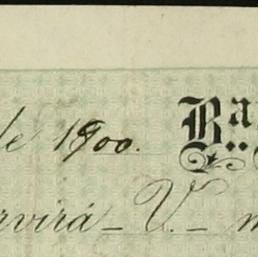 de 1900. Ba
rvirá - V. -